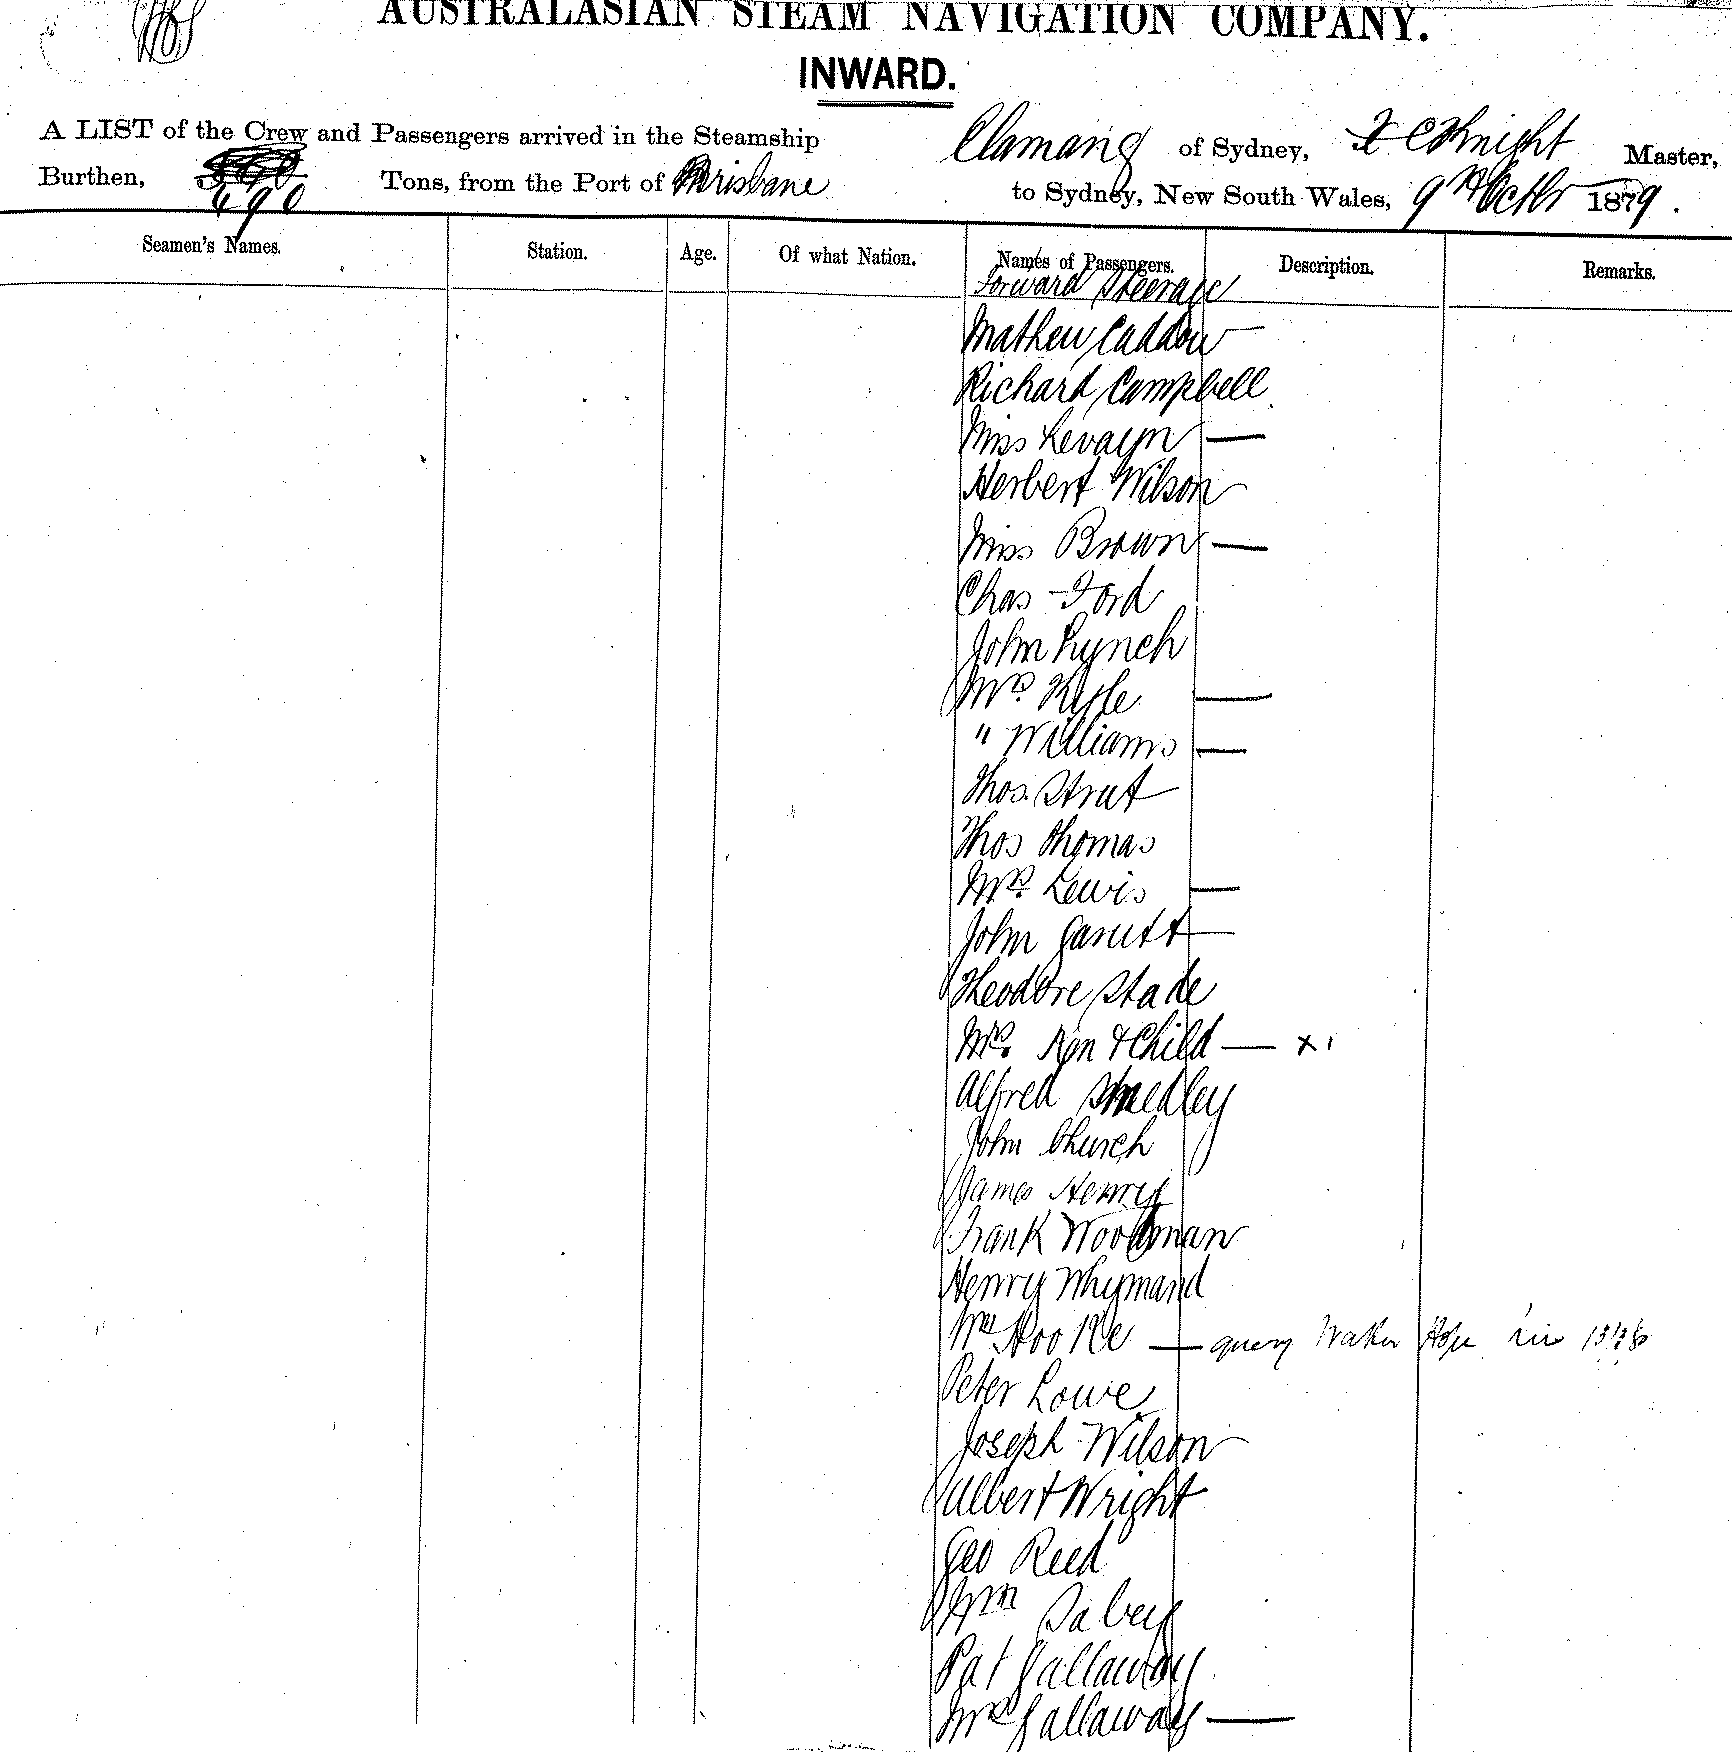 AUSTRALASIAN STEAM NAVIGATION COMPANY.
INWARD.
A LIST of the Crew and Passengers arrived in the Steamship Clamang of Sydney, Knight Master,
Burthen, 490 Tons, from the Port of Brisbane to Sydney, New South Wales, 9th Octbr 1879.
Seamen's Names. Station. Age. Of what Nation. Names of Passengers. Description. Remarks.
Forward Steerage
Mathew Caddow
Richard Campbell
Miss Levayn —
Herbert Wilson
Miss Brown —
Chas Ford
John Lynch
Mrs Kyle —
" Williams —
Thos. Strut
Thos Thomas
Mrs Lewis —
John Garutt
Theodore Stade
Mrs. & Child — x 1
Alfred Smedley
John Church
James Henry
Frank Woodman
Henry Whymand
Wm Hooke — query in
Peter Lowe
Joseph Wilson
Albert Wright
Geo Reed
Wm Sabey
Pat Gallaway
Mrs Gallaway —